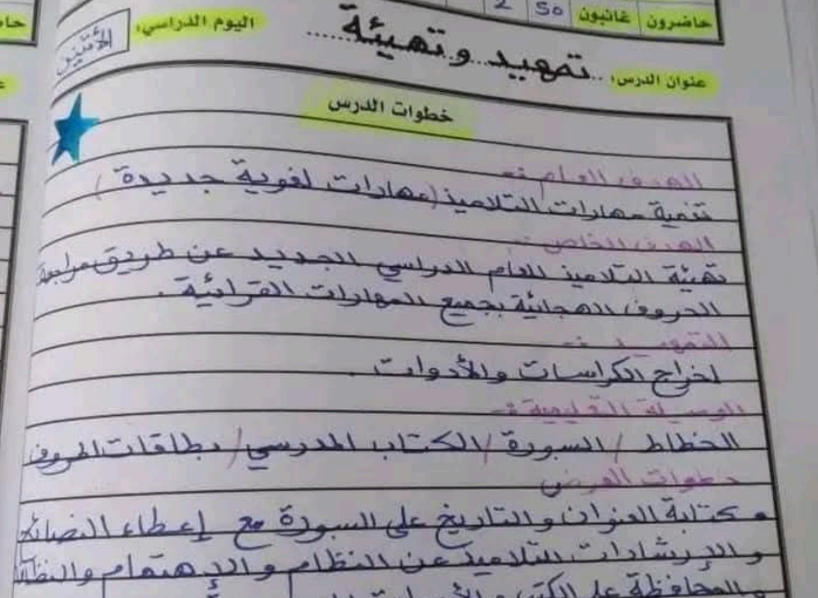 حاضرون غائبون 50 2
عنوان الدرس: تمهيد وتهيئة
اليوم الدراسي: الأثنين
خطوات الدرس
الهدف العام :-
تنمية مهارات التلاميذ (مهارات لغوية جديدة)
الهدف الخاص :-
تهيئة التلاميذ للعام الدراسي الجديد عن طريق مراجعة
الحروف الهجائية بجميع المهارات القرائية .
التمهيد :-
اخراج الكراسات والأدوات .
الوسيلة التعليمية :-
الخطاط / السبورة / الكتاب المدرسي / بطاقات الحروف
خطوات العرض
كتابة العنوان والتاريخ على السبورة مع إعطاء النصائح
والارشادات للتلاميذ عن النظام والاهتمام
والمحافظة على الكتب